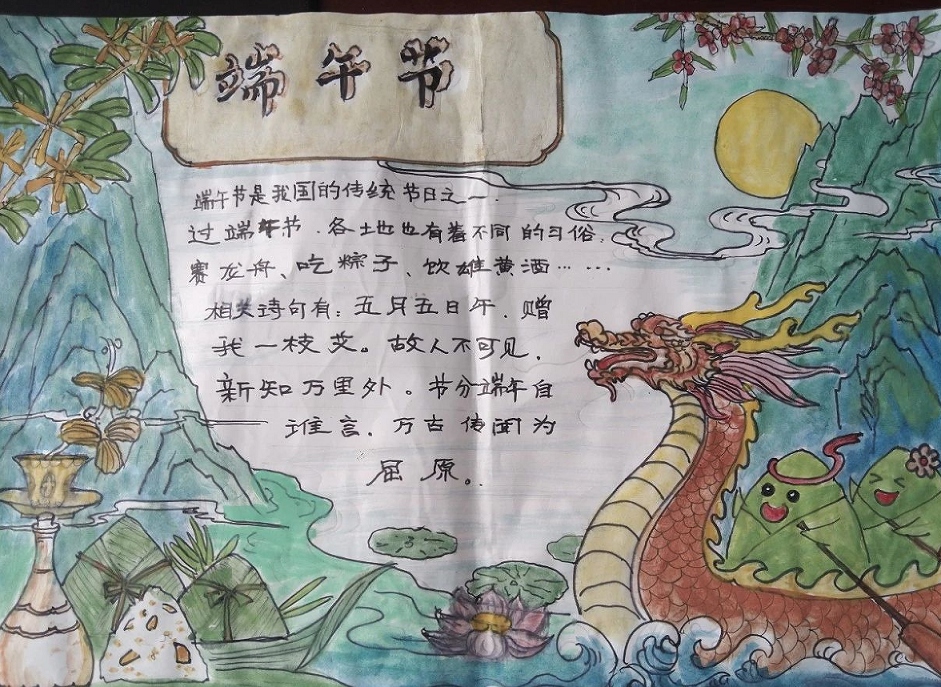 端午节
端午节是我国的传统节日之一.
过端午节.各土地也有着不同的习俗.
赛龙舟、吃粽子、饮雄黄酒……
相关诗句有：五月五日午.赠
我一枝艾。故人不可见.
新知万里外。节分端午自
谁言.万古传闻为
屈原。